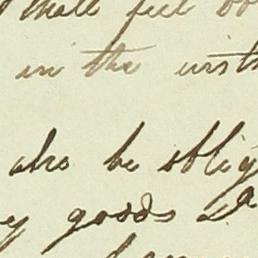 shall feel
in the inst
also be oblig
ey goods